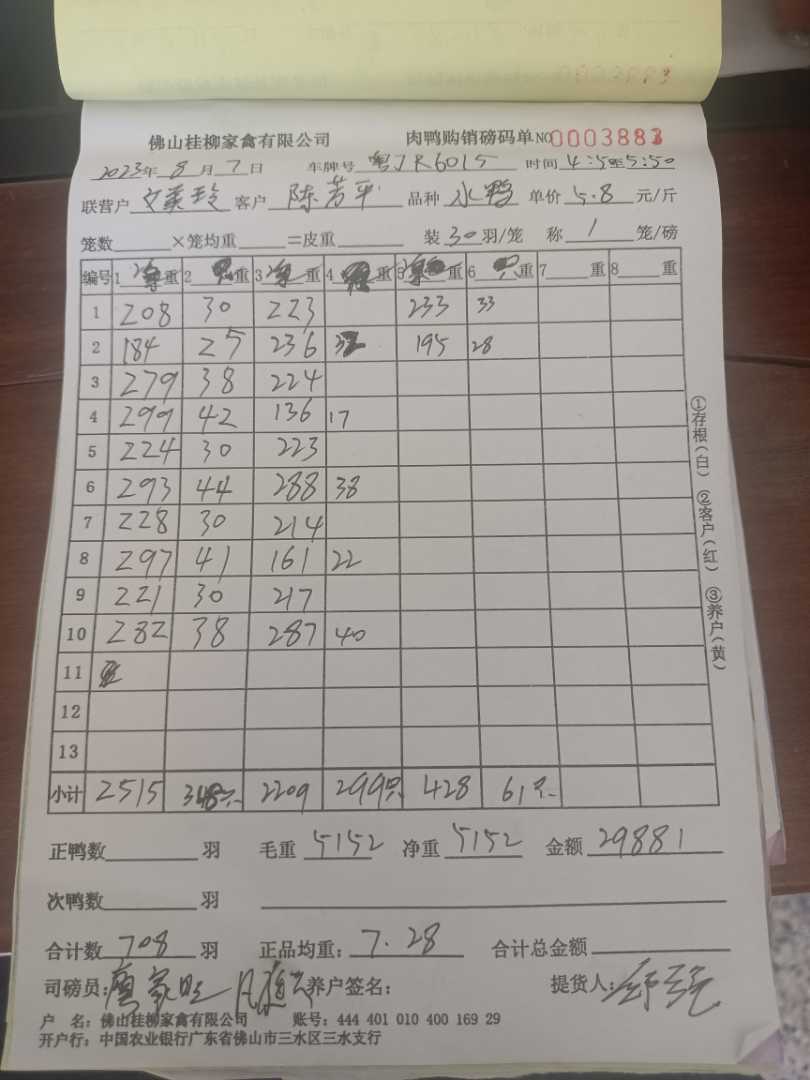 佛山桂柳家禽有限公司 肉鸭购销磅码单 NO 0003883
2023年 8月 7日 车牌号 粤JR6015 时间 4:50至5:50
联营户 文英玲 客户 陈芳平 品种 水鸭 单价 5.8 元/斤
笼数 ×笼均重 =皮重 装 30 羽/笼 称 1 笼/磅
编号 1 净重 2 重 3 净重 4 重 5 重 6 只重 7 重 8 重
1 208 30 223 233 33
2 184 25 236 32 195 28
3 279 38 224
4 299 42 136 17
5 224 30 223
6 293 44 288 38
7 228 30 214
8 297 41 161 22
9 221 30 217
10 282 38 287 40
11
12
13
小计 2515 348只 2209 299只 428 61只
正鸭数 羽 毛重 5152 净重 5152 金额 29881
次鸭数 羽
合计数 708 羽 正品均重: 7.28 合计总金额
司磅员: 养户签名: 提货人:
户 名: 佛山桂柳家禽有限公司 账号: 444 401 010 400 169 29
开户行: 中国农业银行广东省佛山市三水区三水支行
①存根(白) ②客户(红) ③养户(黄)